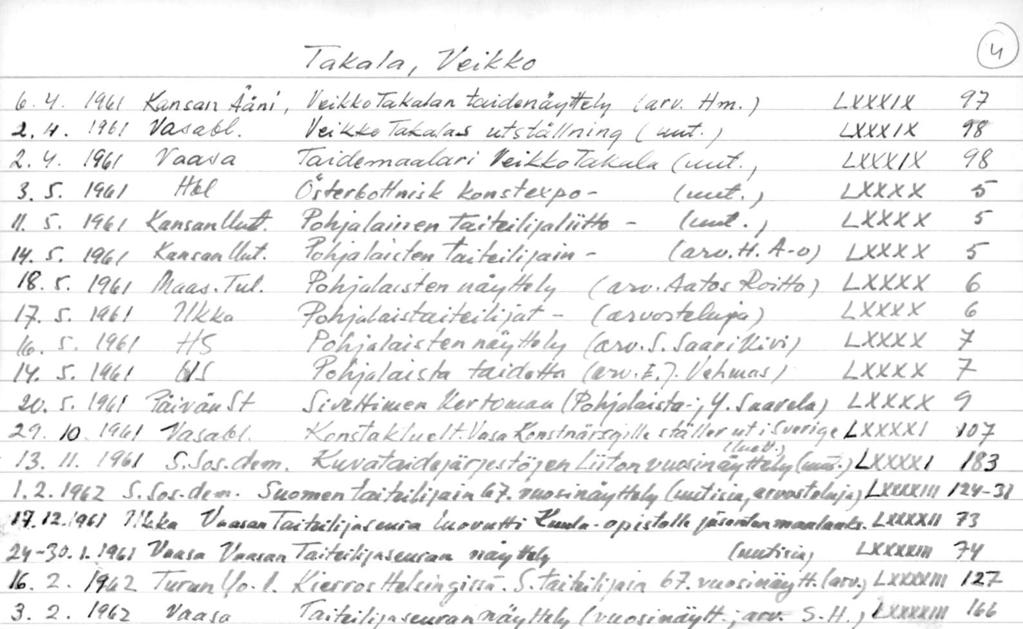 Takala, Veikko 4
6.4. 1961 Kansan Ääni, Veikko Takalan taidenäyttely (arv. Hm.) LXXXIX 97
2.4. 1961 Vasabl. Veikko Takalas utställning (uut.) LXXXIX 98
2.4. 1961 Vaasa Taidemaalari Veikko Takala (uut.) LXXXIX 98
3.5. 1961 Hbl Österbottnisk konstexpo- (uut.) LXXXX 5
11.5. 1961 Kansan Uut. Pohjalainen Taiteilijaliitto - (uut.) LXXXX 5
14.5. 1961 Kansan Uut. Pohjalaisten Taiteilijain - (arv. H. A-o) LXXXX 5
18.5. 1961 Maas. Tul. Pohjalaisten näyttely (arv. Aatos Roitto) LXXXX 6
17.5. 1961 Ilkka Pohjalaistaiteilijat - (arvosteluja) LXXXX 6
16.5. 1961 HS Pohjalaisten näyttely (arv. S. Saarikivi) LXXXX 7
14.5. 1961 US Pohjalaista taidetta (arv. E.J. Vehmas) LXXXX 7
20.5. 1961 Päivän St Siveltimen kertomaa (Pohjolaista-; Y. Saarela) LXXXX 9
29.10 1961 Vasabl. Konstaktuellt. Vasa Konstnärsgille ställer ut i Sverige LXXXXI 107
13.11. 1961 S. Sos. dem. Kuvataidejärjestöjen Liiton vuosinäyttely (uut.) LXXXXI 183
1.2.1962 S. Sos-dem. Suomen taiteilijain 67. vuosinäyttely (uutisia, arvosteluja) LXXXXIII 124-31
17.12.1961 Ilkka Vaasan Taiteilijaseura luovutti Kuula-opistolle jäsenten maalauks. LXXXXII 73
24-30.1.1961 Vaasa Vaasan Taiteilijaseuran näyttely (uutisia) LXXXXIII 74
16.2. 1962 Turun Yo-l. Kierros Helsingissä. S. taiteilijain 67. vuosinäytt. (arv.) LXXXXIII 127
3.2. 1962 Vaasa Taiteilijaseuran näyttely (vuosinäytt.; arv. S-H.) LXXXXIII 166